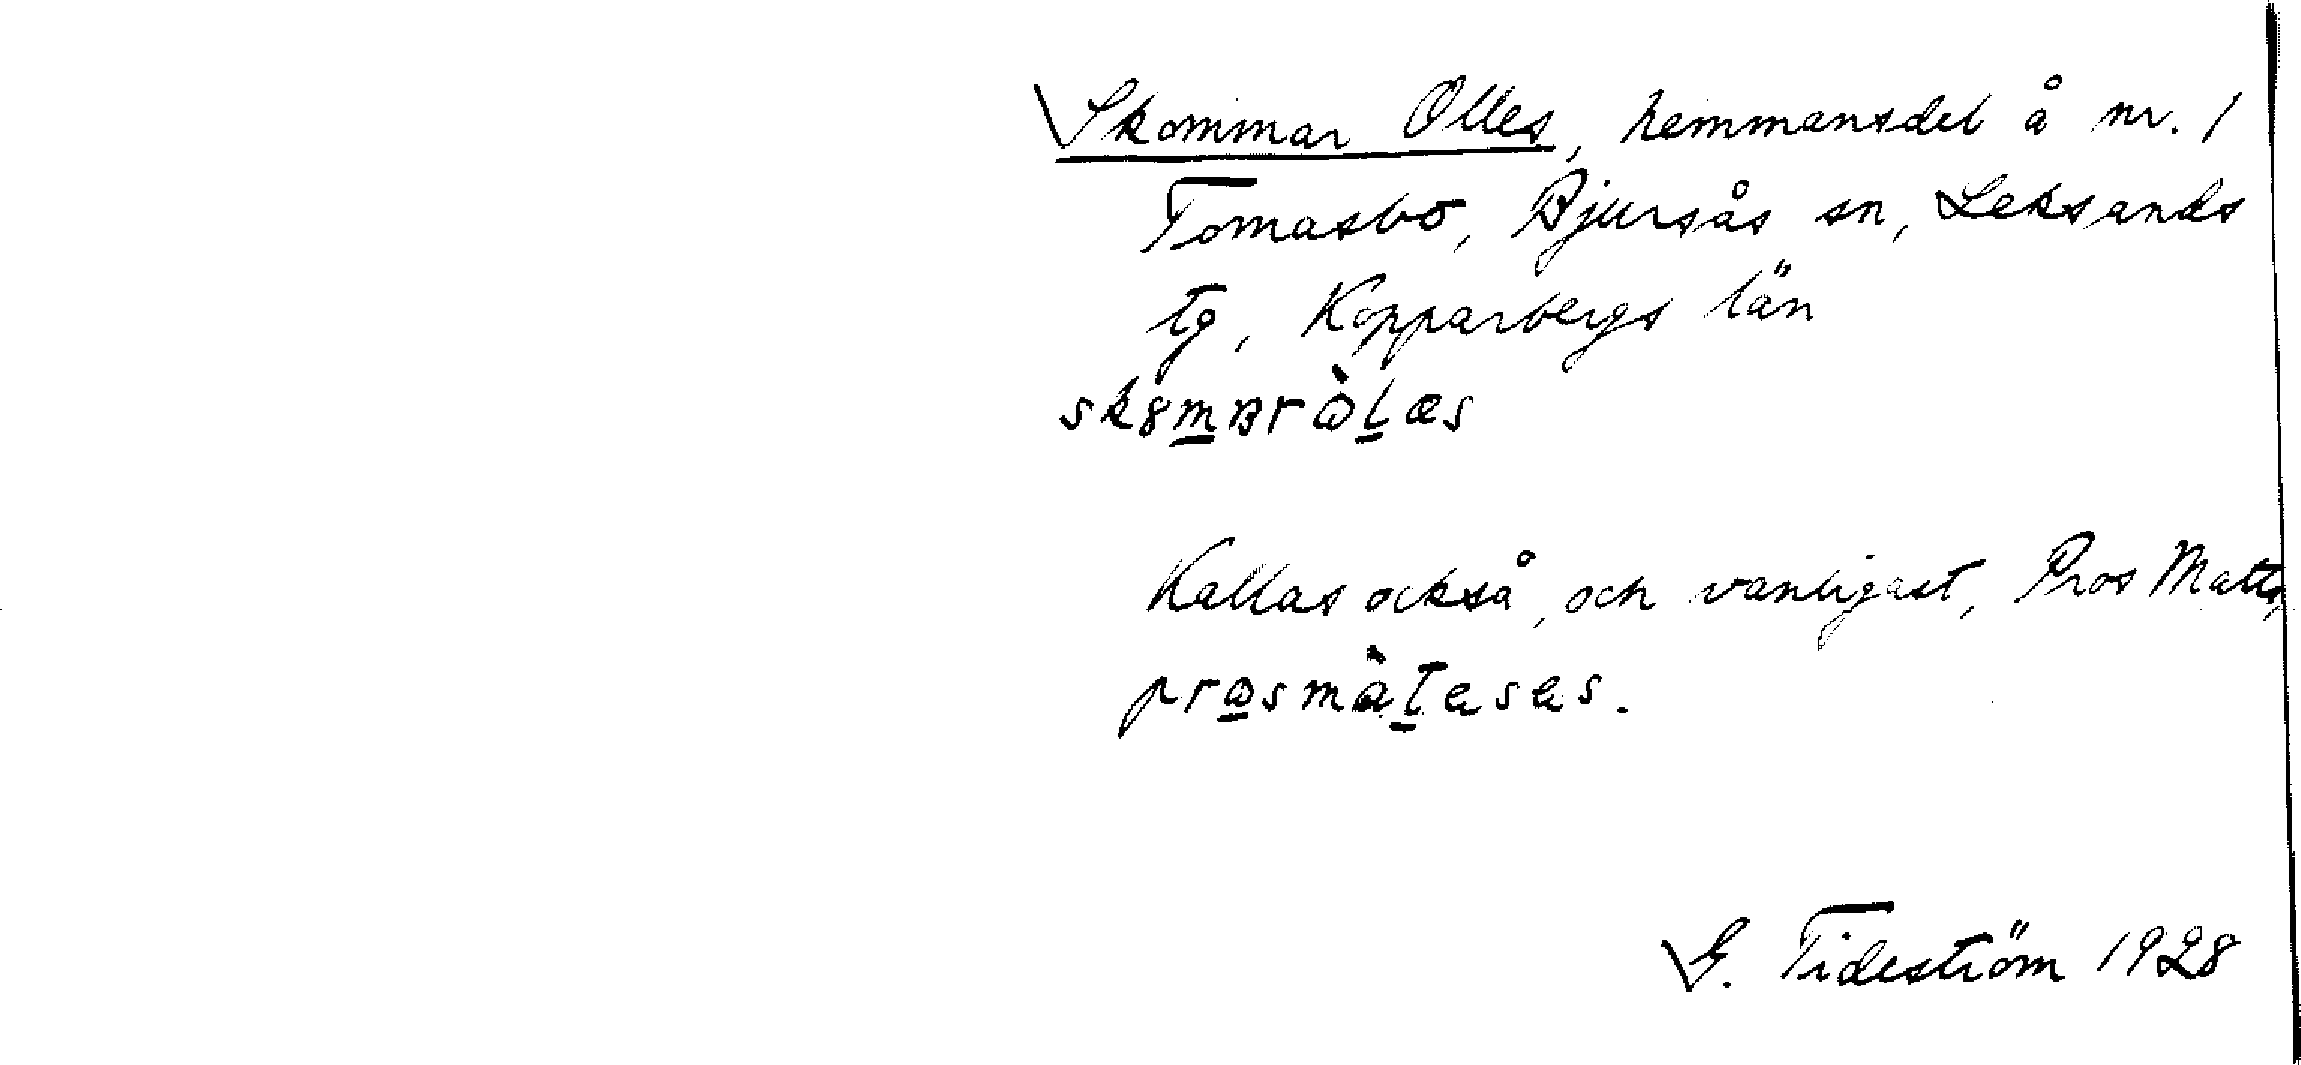 Skommar Olles, hemmansdel å nr. 1
Tomasbo, Bjursås sn, Leksands
tg, Kopparbergs län
sk8mʙròlæs
Kallas också, och vanligast, Pros Matts,
prosmàtesas.
G. Tideström 1928